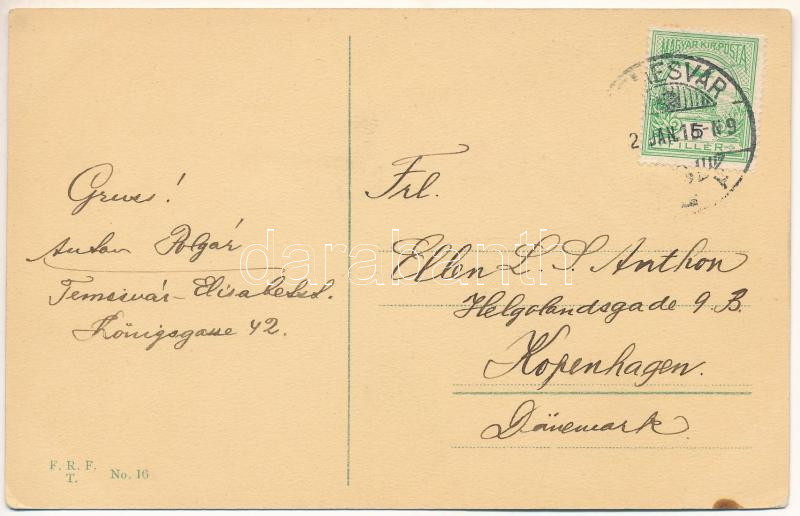 Gruss!
Anton Polgár
Temesvár-Elisabetst.
Königsgasse 42.
F. R. F.
T.
No. 16
MAGYAR KIR. POSTA
FILLÉR
Frl.
Ellen L. S. Anthon
Helgolandsgade 9 B.
Kopenhagen.
Dänemark.
darabanth